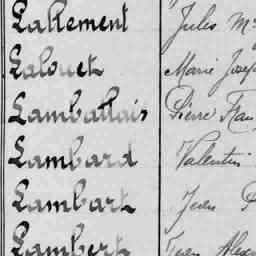 Lallement Jules M
Lalouet Marie Josep
Lamballais Pierre Fran
Lambard Valentin
Lambart Jean
Lambert Jean Alex